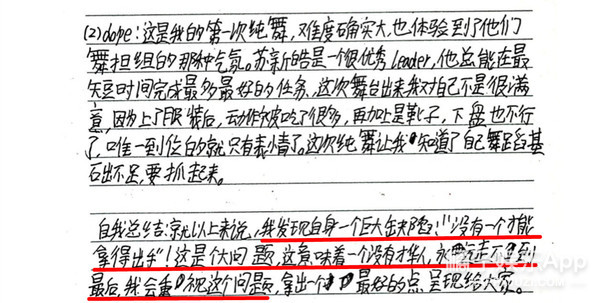 (2)dope:这是我的第一次纯舞,难度确实大,也体验到了他们
舞担组的那种气氛。苏新皓是一个很优秀leader,他总能在最
短时间完成最多最好的任务,这次舞台出来我对自己不是很满
意,因为上了服装后,动作被吃了很多,再加上是靴子,下盘也不行
了,唯一到位的就只有表情了。这次纯舞让我知道了自己舞蹈基
石出不足,要抓起来。
自我总结:就以上来说,我发现自身一个巨大缺陷:“没有一个才能
拿得出手”!这是个大问题,这意味着一个没有才华人,永
最后,我会重视这个问题,拿出一个最好的点,呈现给大家。
App